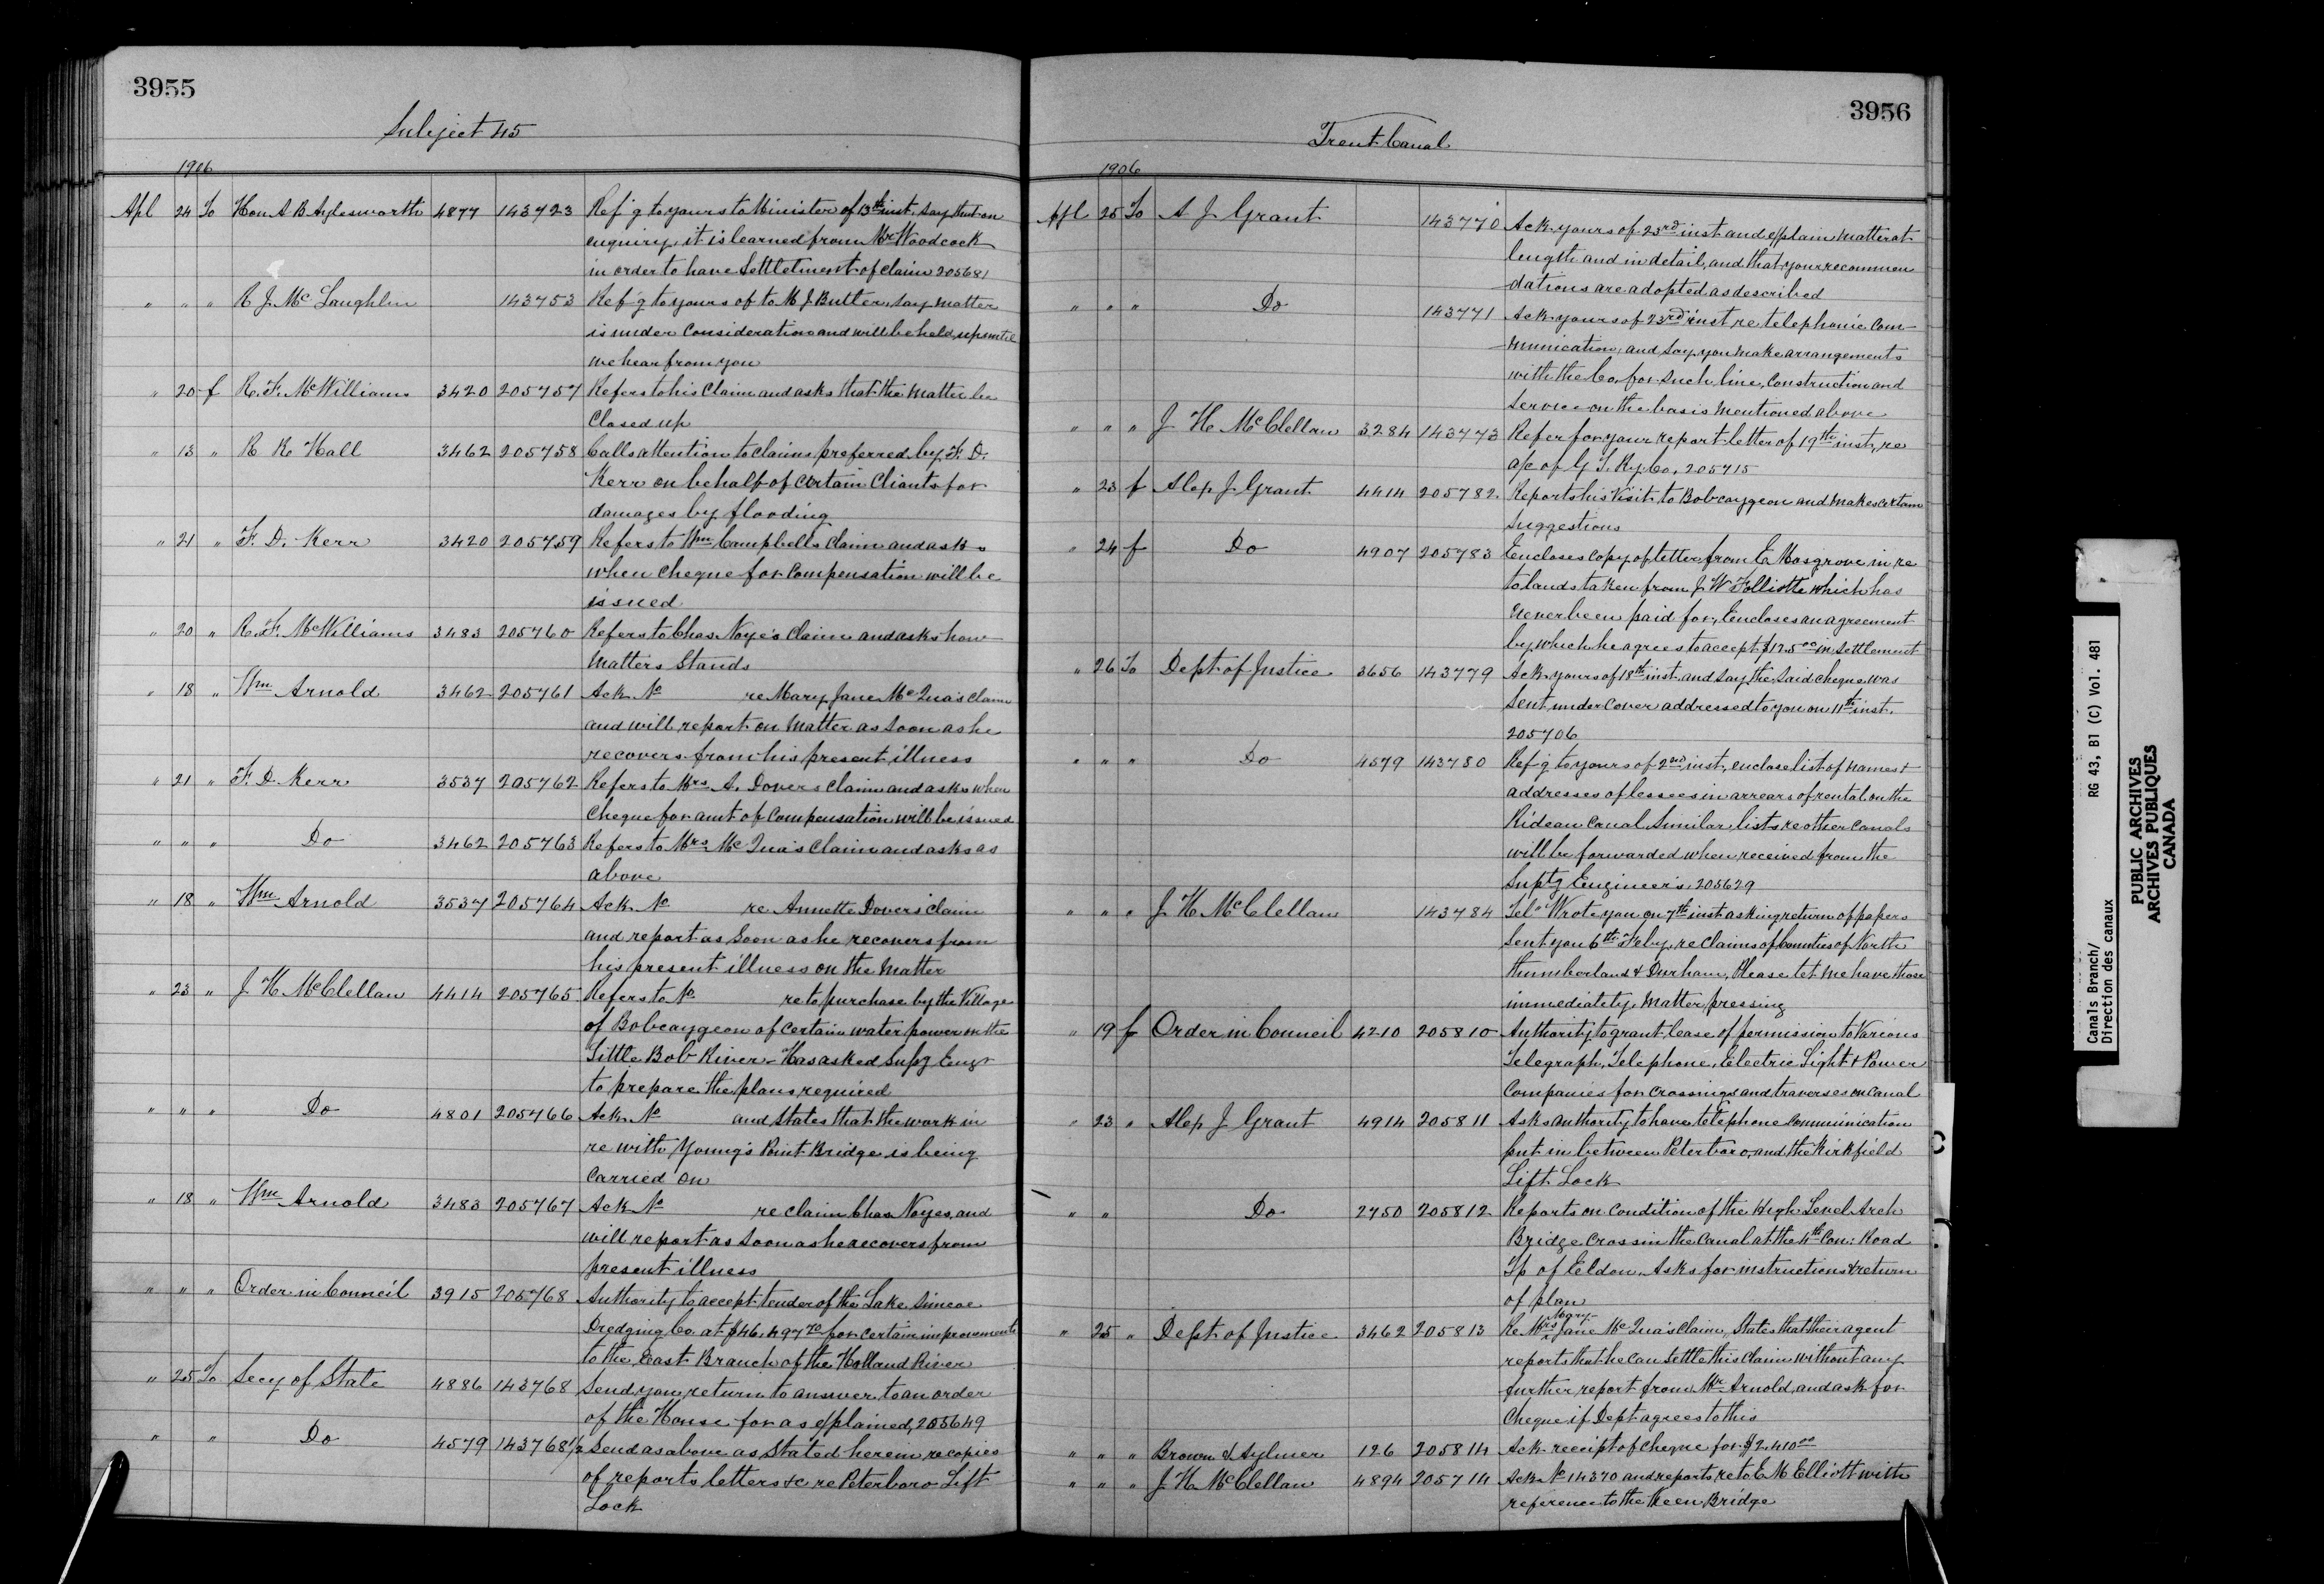 3955
Subject 45
1906
Apl 24 To Hon A B Aylesworth 4877 143723 Ref'g to yours to Minister of 13th inst, say that on
enquiry, it is learned from Mr Woodcock
in order to have Settletment of claim 205681
" " " R J. McLaughlin 143753 Ref'g to yours of to M J Butler, say matter
is under consideration and will be held up until
we hear from you
" 20 f R. F. McWilliams 3420 205757 Refers to his Claim and asks that the matter be
Closed up
" 13 " R R Hall 3462 205758 Calls attention to claims preferred by F. D.
Kerr on behalf of certain Cliants for
damages by flooding
" 21 " F. D. Kerr 3420 205759 Refers to Wm Campbells claim and asks
when cheque for compensation will be
issued
" 20 " R. F. McWilliams 3483 205760 Refers to Chas. Noye's claim and asks how
matters stands
" 18 " Wm Arnold 3462 205761 Ack No re Mary Jane McQua's claim
and will report on matter as soon as he
recovers from his present illness
" 21 " F. D. Kerr 3537 205762 Refers to Mrs A. Dovers claim and asks when
cheque for amt of compensation will be issued
" " " Do 3462 205763 Refers to Mrs McQua's claim and asks as
above
" 18 " Wm Arnold 3537 205764 Ack No re Annette Dovers claim
and report as soon as he recovers from
his present illness on the matter
" 23 " J H McClellan 4414 205765 Refers to No re to purchase by the Village
of Bobcaygeon of certain water power on the
Little Bob River. Has asked Suptg Engr
to prepare the plans required
" " " Do 4801 205766 Ack No and states that the work in
re with Young's Point Bridge is being
carried on
" 18 " Wm Arnold 3483 205767 Ack No re claim Chas Noyes, and
will report as soon as he recovers from
present illness
" " " Order in Council 3915 205768 Authority to accept tender of the Lake Simcoe
Dredging Co. at $46,497 70 for certain improvements
to the East Branch of the Holland River
" 25 To Secy of State 4886 143768 Send you return to answer to an order
of the House for as explained, 205649
" " Do 4579 143768½ Send as above as stated herein re copies
of reports letters &c re Peterboro Lift
Lock
3956
Trent Canal
1906
Apl 25 To A J Grant 143770 Ack yours of 23rd inst and explain matter at
length and in detail, and that your recommen
dations are adopted as described
" " " Do 143771 Ack yours of 23rd inst re telephonic com-
munication, and say, you make arrangements
with the Co. for such line, construction and
service on the basis mentioned above
" " " J H McClellan 3284 143773 Refer for your report letter of 19th inst, re
a/c of G T. Ry. Co. 205715
" 23 f Alex J Grant 4414 205782 Reports his visit to Bobcaygeon and makes certain
suggestions
" 24 f Do 4907 205783 Encloses copy of letter from E Mosgrove in re
to lands taken from J W Folliotte which has
never been paid for, Encloses an agreement
by which he agrees to accept $125 00 in settlement
" 26 To Dept of Justice 3656 143779 Ack yours of 18th inst. and say, the said cheque was
sent under cover addressed to you on 11th inst.
205706
" " " Do 4579 143780 Ref'g to yours of 2nd inst, enclose list of names &
addresses of lessees in arrears of rental on the
Rideau Canal. Similar lists re other canals
will be forwarded when received from the
Suptg Engineer's. 205629
" " " J H McClellan 143784 Tel" Wrote you on 7th inst asking return of papers
sent you 6th Feby. re claims of Counties of North
thumberland & Durham, Please let me have those
immediately. Matter pressing
" 19 f Order in Council 4210 205810 Authority to grant lease of permission to Various
Telegraph, Telephone, Electric Light & Power
Companies for crossings and traverses on Canal
" 23 " Alex J Grant 4914 205811 Asks authority to have telephone communication
put in between Peterboro, and the Kirkfield
Lift Lock
" " Do 2750 205812 Reports on condition of the High Level Arch
Bridge crossin the Canal at the 4th Con: Road
Tp of Eldon. Asks for instructions & return
of plan
" 25 " Dept of Justice 3462 205813 Re Mrs Mary Jane McQua's claim, States that their agent
reports that he can settle this claim without any
further report from Mr Arnold, and ask for
cheque if Dept agrees to this
" " " Brown & Aylmer 126 205814 Ack receipt of cheque for $2,410 00
" " " J H McClellan 4894 205714 Ack No 14370 and reports, re to E M Elliott with
reference to the Keen Bridge
Canals Branch/ RG 43, B1 (C) Vol. 481
Direction des canaux
PUBLIC ARCHIVES
ARCHIVES PUBLIQUES
CANADA